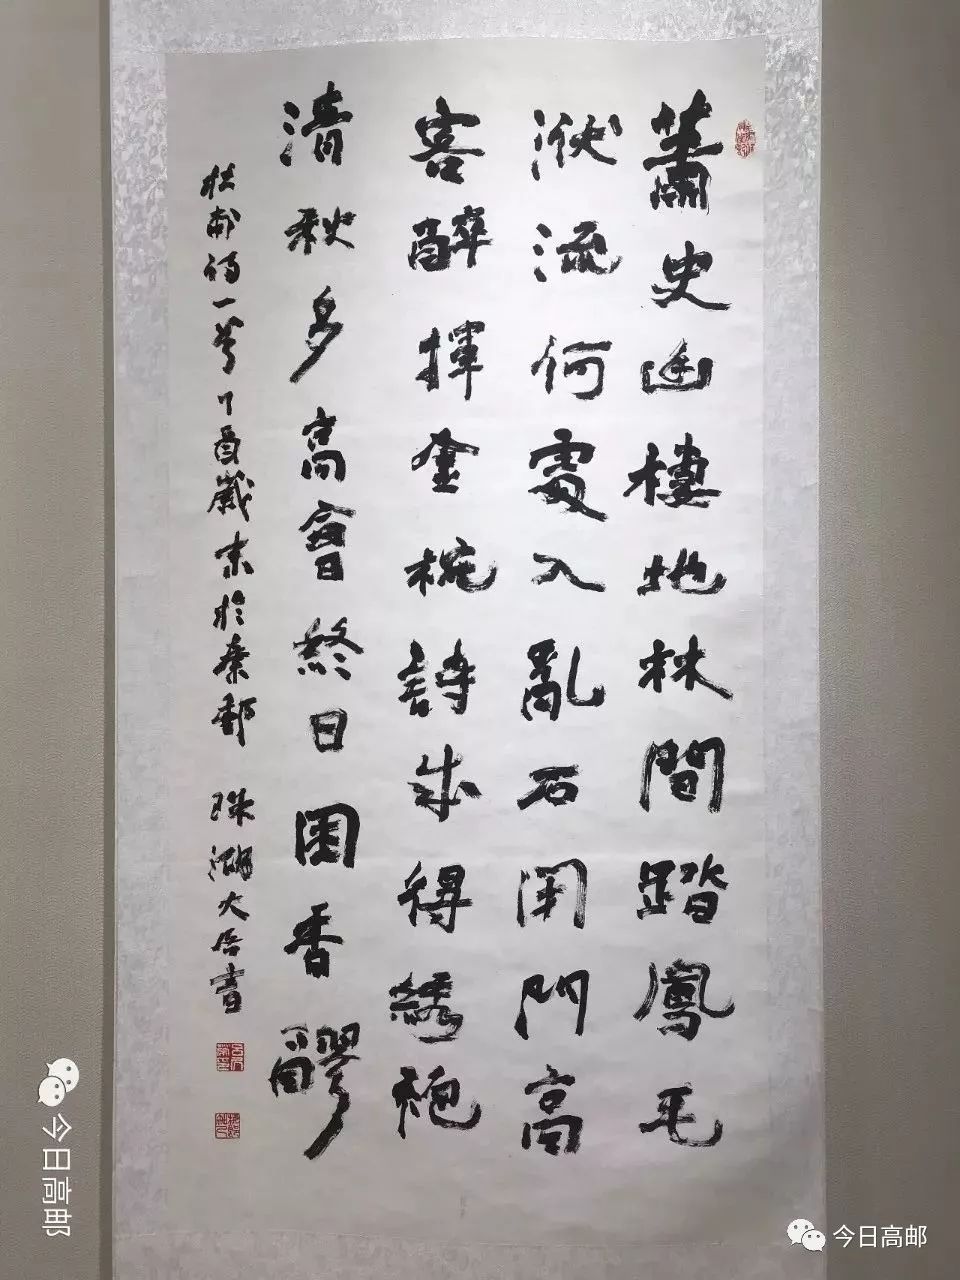 蕭史幽棲地林間踏鳳毛
洑流何處入亂石閇門高
客醉揮金椀詩成得綉袍
清秋多高會終日困香醪
杜甫詩一首丁酉歲末於秦郵 珠湖大居書
今日高邮
今日高邮